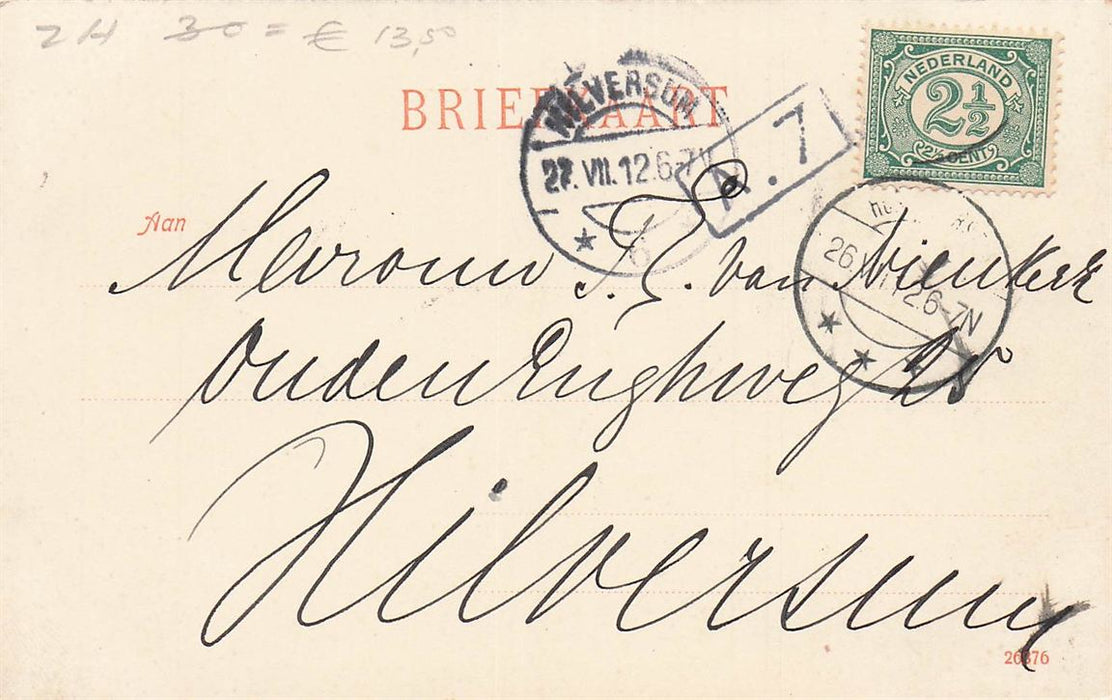 ZH 30 = € 13,50
BRIEFKAART
HILVERSUM
27.VII.12.6-7N
6
A.7
NEDERLAND
2½
2½ CENT
26.VII.12.6-7N
Aan
Mevrouw
van Nienkerk
Ouden Enghweg 25
Hilversum
26376